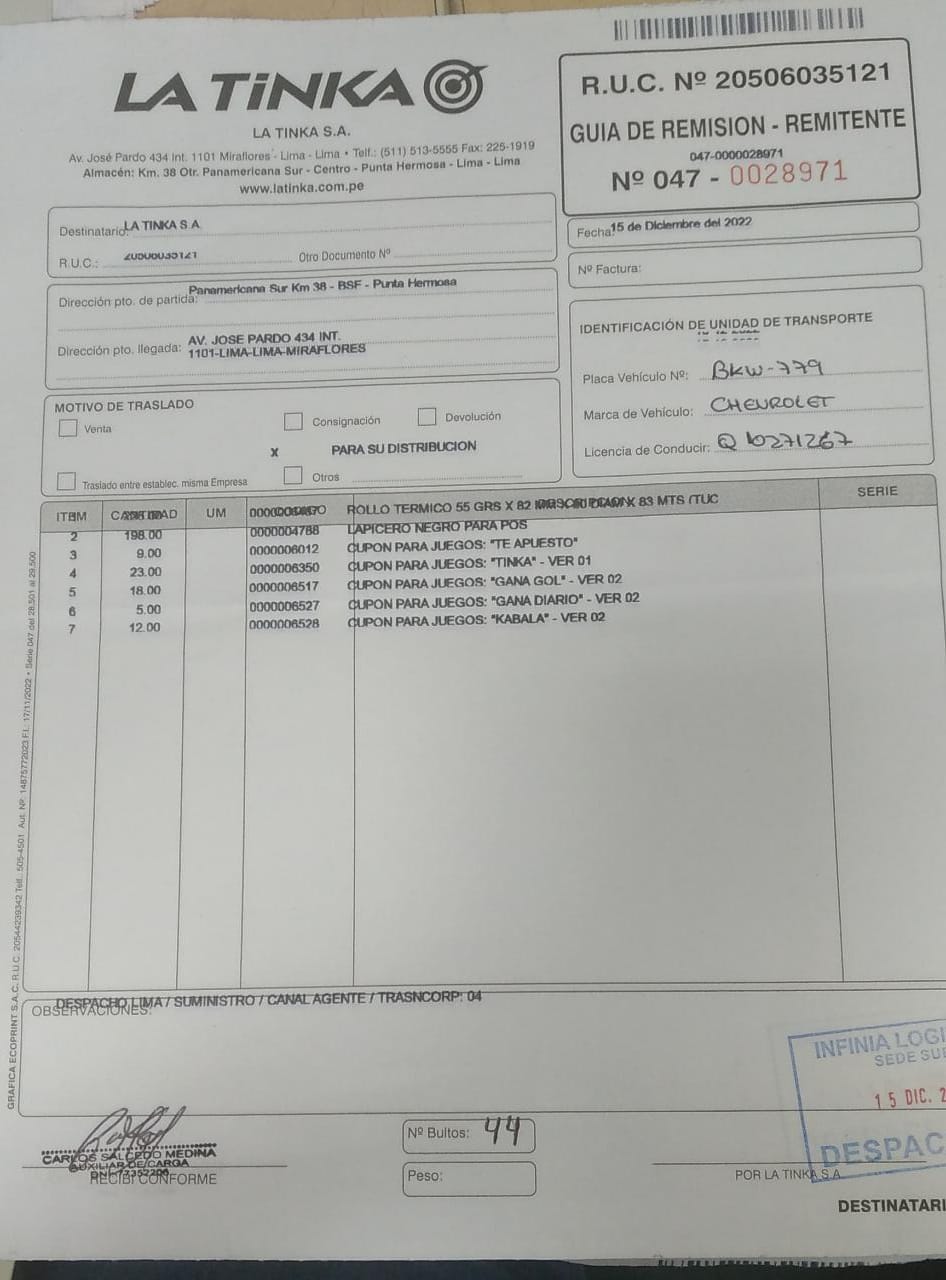 LA TINKA
LA TINKA S.A.
Av. José Pardo 434 Int. 1101 Miraflores - Lima - Lima • Telf.: (511) 513-5555 Fax: 225-1919
Almacén: Km. 38 Otr. Panamericana Sur - Centro - Punta Hermosa - Lima - Lima
www.latinka.com.pe
R.U.C. Nº 20506035121
GUIA DE REMISION - REMITENTE
047-0000028971
Nº 047 - 0028971
Destinatario: LA TINKA S.A.
R.U.C.: 20506035121 Otro Documento Nº
Fecha: 15 de Diciembre del 2022
Nº Factura:
Dirección pto. de partida: Panamericana Sur Km 38 - BSF - Punta Hermosa
Dirección pto. llegada: AV. JOSE PARDO 434 INT.
1101-LIMA-LIMA-MIRAFLORES
IDENTIFICACIÓN DE UNIDAD DE TRANSPORTE
Placa Vehículo Nº: BKW-779
Marca de Vehículo: CHEVROLET
Licencia de Conducir: Q10271267
MOTIVO DE TRASLADO
Venta
Consignación
Devolución
x PARA SU DISTRIBUCION
Traslado entre establec. misma Empresa
Otros
ITEM CANTIDAD UM DESCRIPCION SERIE
ROLLO TERMICO 55 GRS X 82 X 83 MTS (TUC
2 198.00 0000004788 LAPICERO NEGRO PARA POS
3 9.00 0000006012 CUPON PARA JUEGOS: "TE APUESTO"
4 23.00 0000006350 CUPON PARA JUEGOS: "TINKA" - VER 01
5 18.00 0000006517 CUPON PARA JUEGOS: "GANA GOL" - VER 02
6 5.00 0000006527 CUPON PARA JUEGOS: "GANA DIARIO" - VER 02
7 12.00 0000006528 CUPON PARA JUEGOS: "KABALA" - VER 02
GRAFICA ECOPRINT S.A.C. R.U.C. 20544239342 Telf.: 505-4501 Aut. Nº: 14875772023 F.I.: 17/11/2022 • Serie 047 del 28,501 al 29,500
DESPACHO LIMA / SUMINISTRO / CANAL AGENTE / TRASNCORP: 04
OBSERVACIONES:
INFINIA LOGI
SEDE SU
15 DIC. 2
DESPAC
CARLOS SALCEDO MEDINA
AUXILIAR DE CARGA
RECIBI CONFORME
Nº Bultos: 44
Peso:
POR LA TINKA S.A.
DESTINATARI